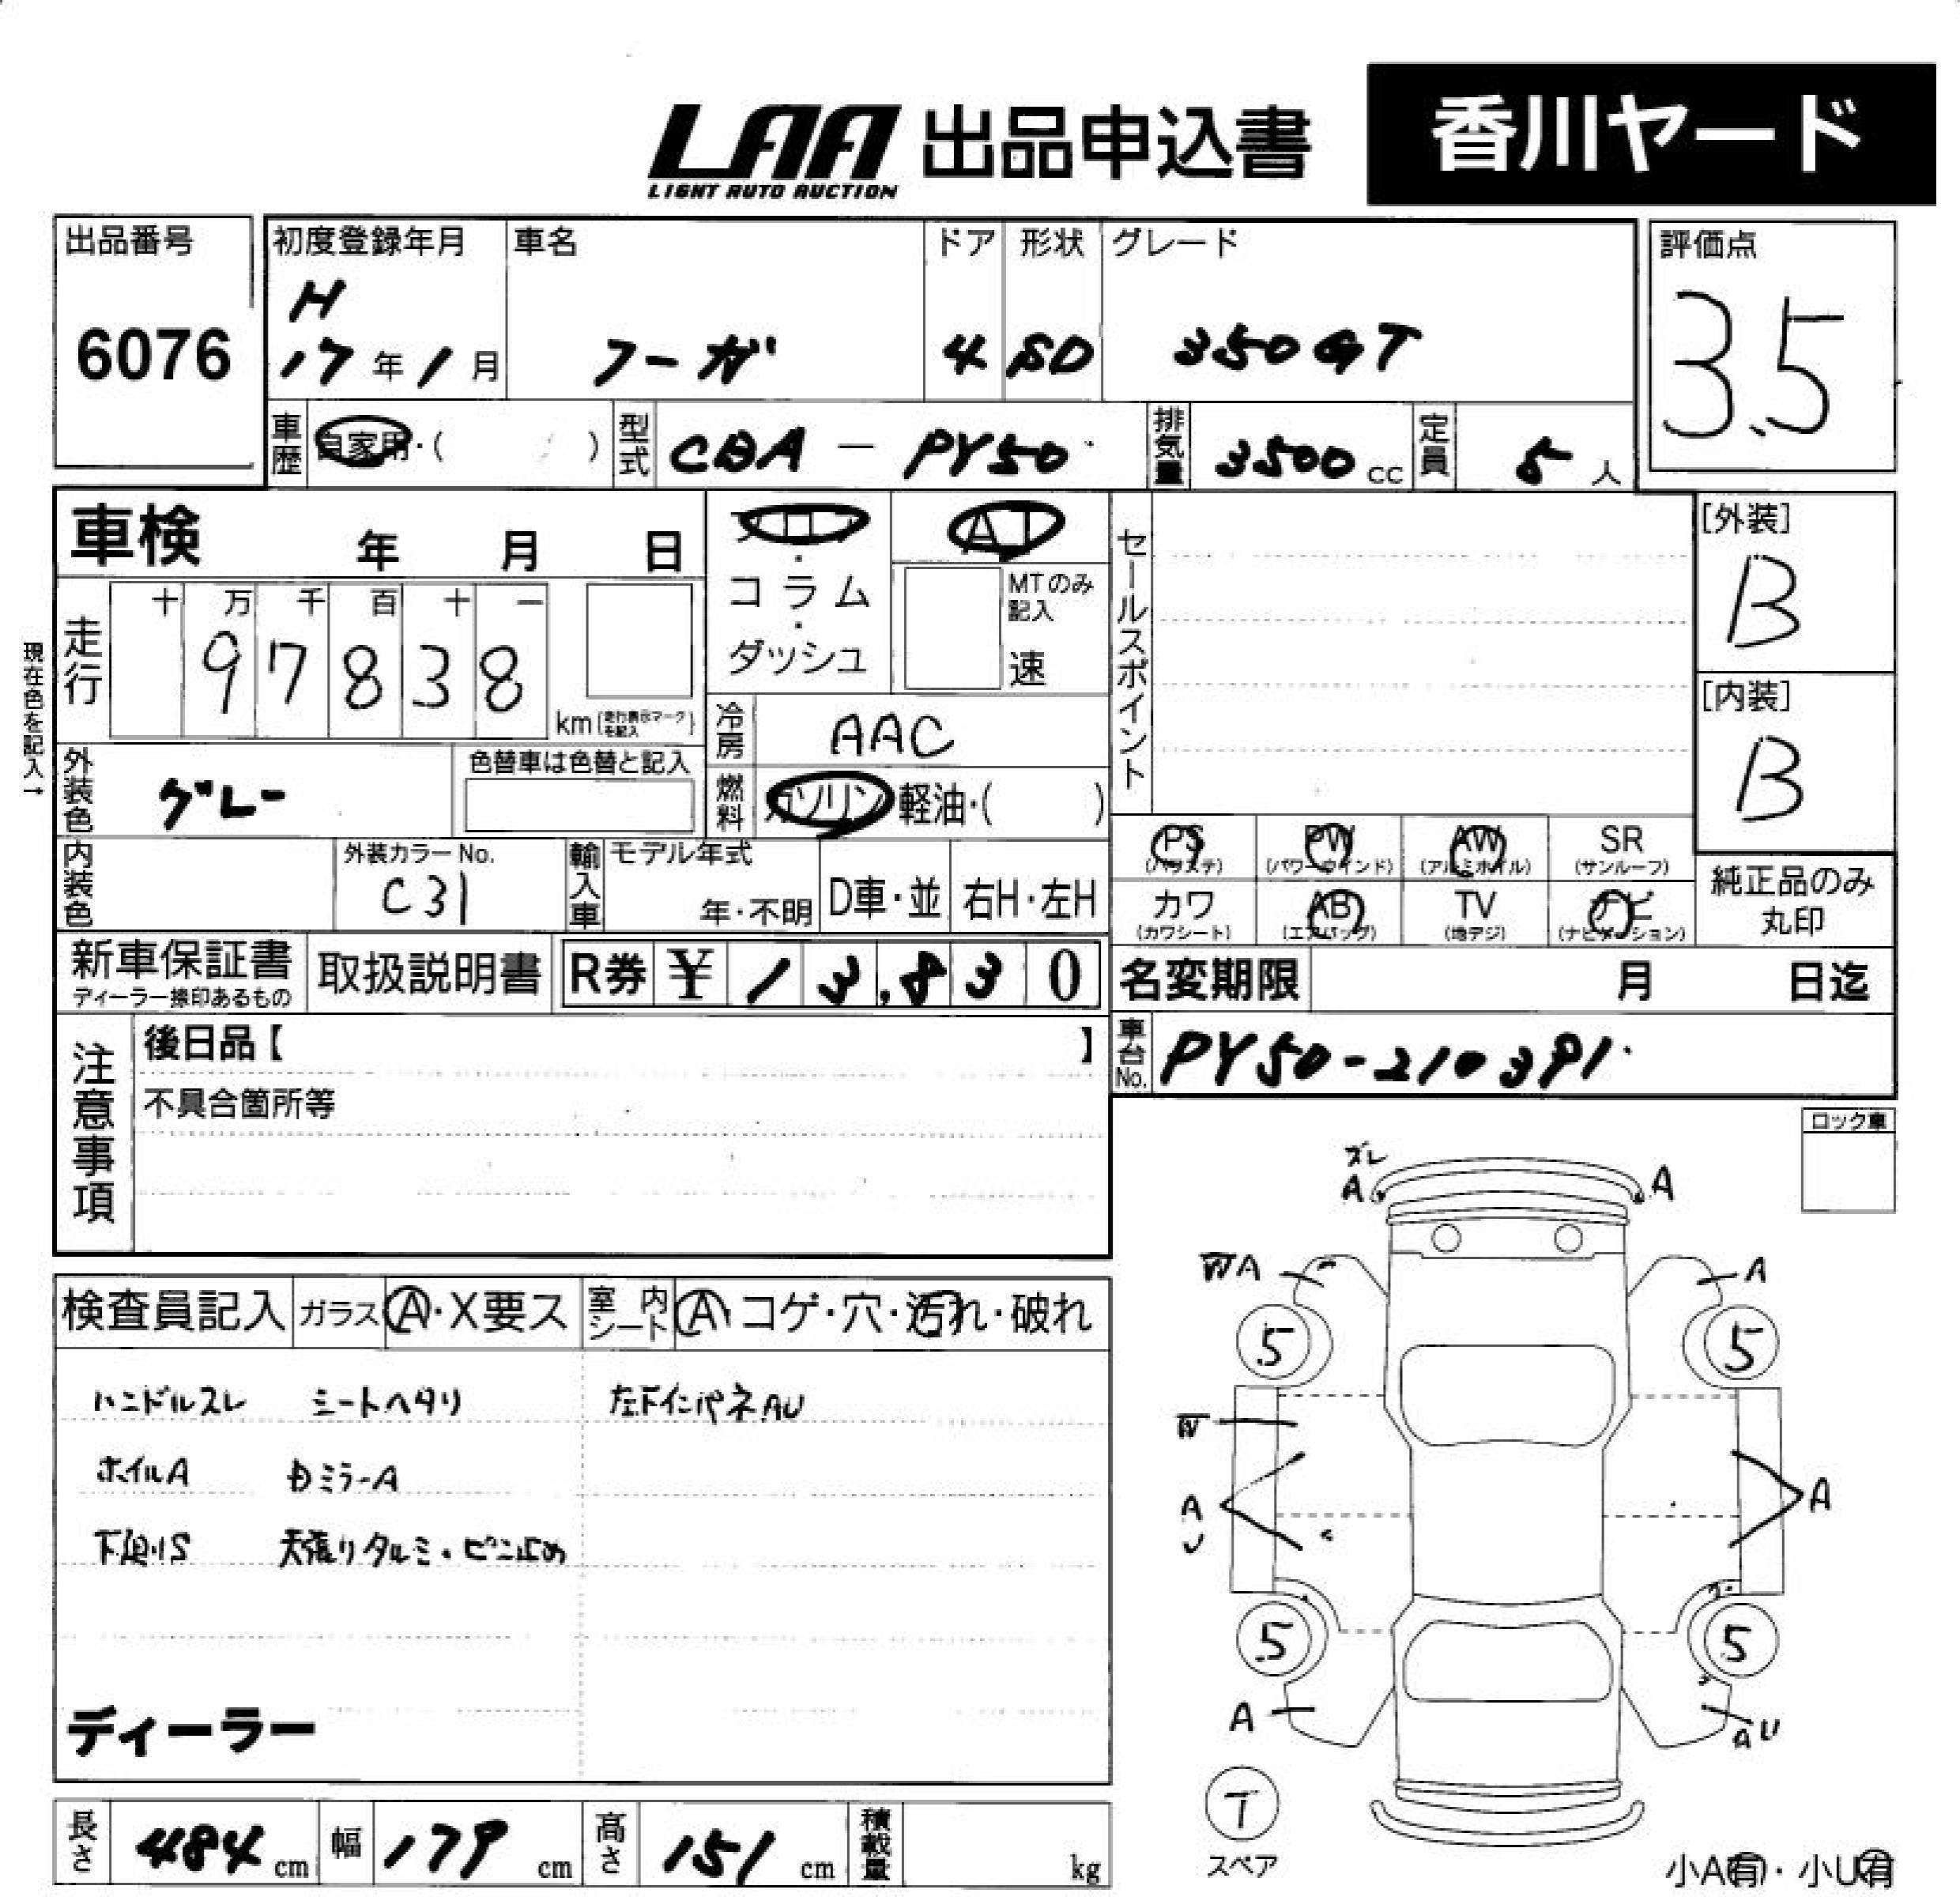 LAA 出品申込書 香川ヤード
LIGHT AUTO AUCTION
出品番号 初度登録年月 車名 ドア 形状 グレード 評価点
H
6076 17年1月 フーガ 4 SD 350GT 3.5
車歴 自家用・( ) 型式 CBA-PY50 排気量 3500cc 定員 5人
車検 年 月 日 フロア・コラム・ダッシュ AT
MTのみ記入
速
セールスポイント
[外装]
B
十 万 千 百 十 一
走行 97838
km(走行表示マークを記入)
現在色を記入→
冷房 AAC
[内装]
B
外装色 グレー 色替車は色替と記入
燃料 ガソリン 軽油・( )
内装色 外装カラーNo. C31 輸入車 モデル年式 年・不明 D車・並 右H・左H
PS PW AW SR
(パワステ) (パワーウインド) (アルミホイル) (サンルーフ)
カワ AB TV ナビ
(カワシート) (エアバッグ) (地デジ) (ナビゲーション)
純正品のみ
丸印
新車保証書 取扱説明書 R券 ¥13,830 名変期限 月 日迄
ディーラー捺印あるもの
注意事項
後日品【 】
不具合箇所等
車台No. PY50-210391
ロック車
ズレ
A A
A A
検査員記入 ガラス A・X要ス 室内シート A・コゲ・穴・汚れ・破れ
5 5
ハンドルスレ シートヘタリ 左下インパネAU
ホイルA ミラーA
A A
U
下廻りS 天張りタルミ・ピン止め
5 5
A AU
ディーラー
T
スペア
長さ 484cm 幅 179cm 高さ 151cm 積載量 kg
小A有・小U有